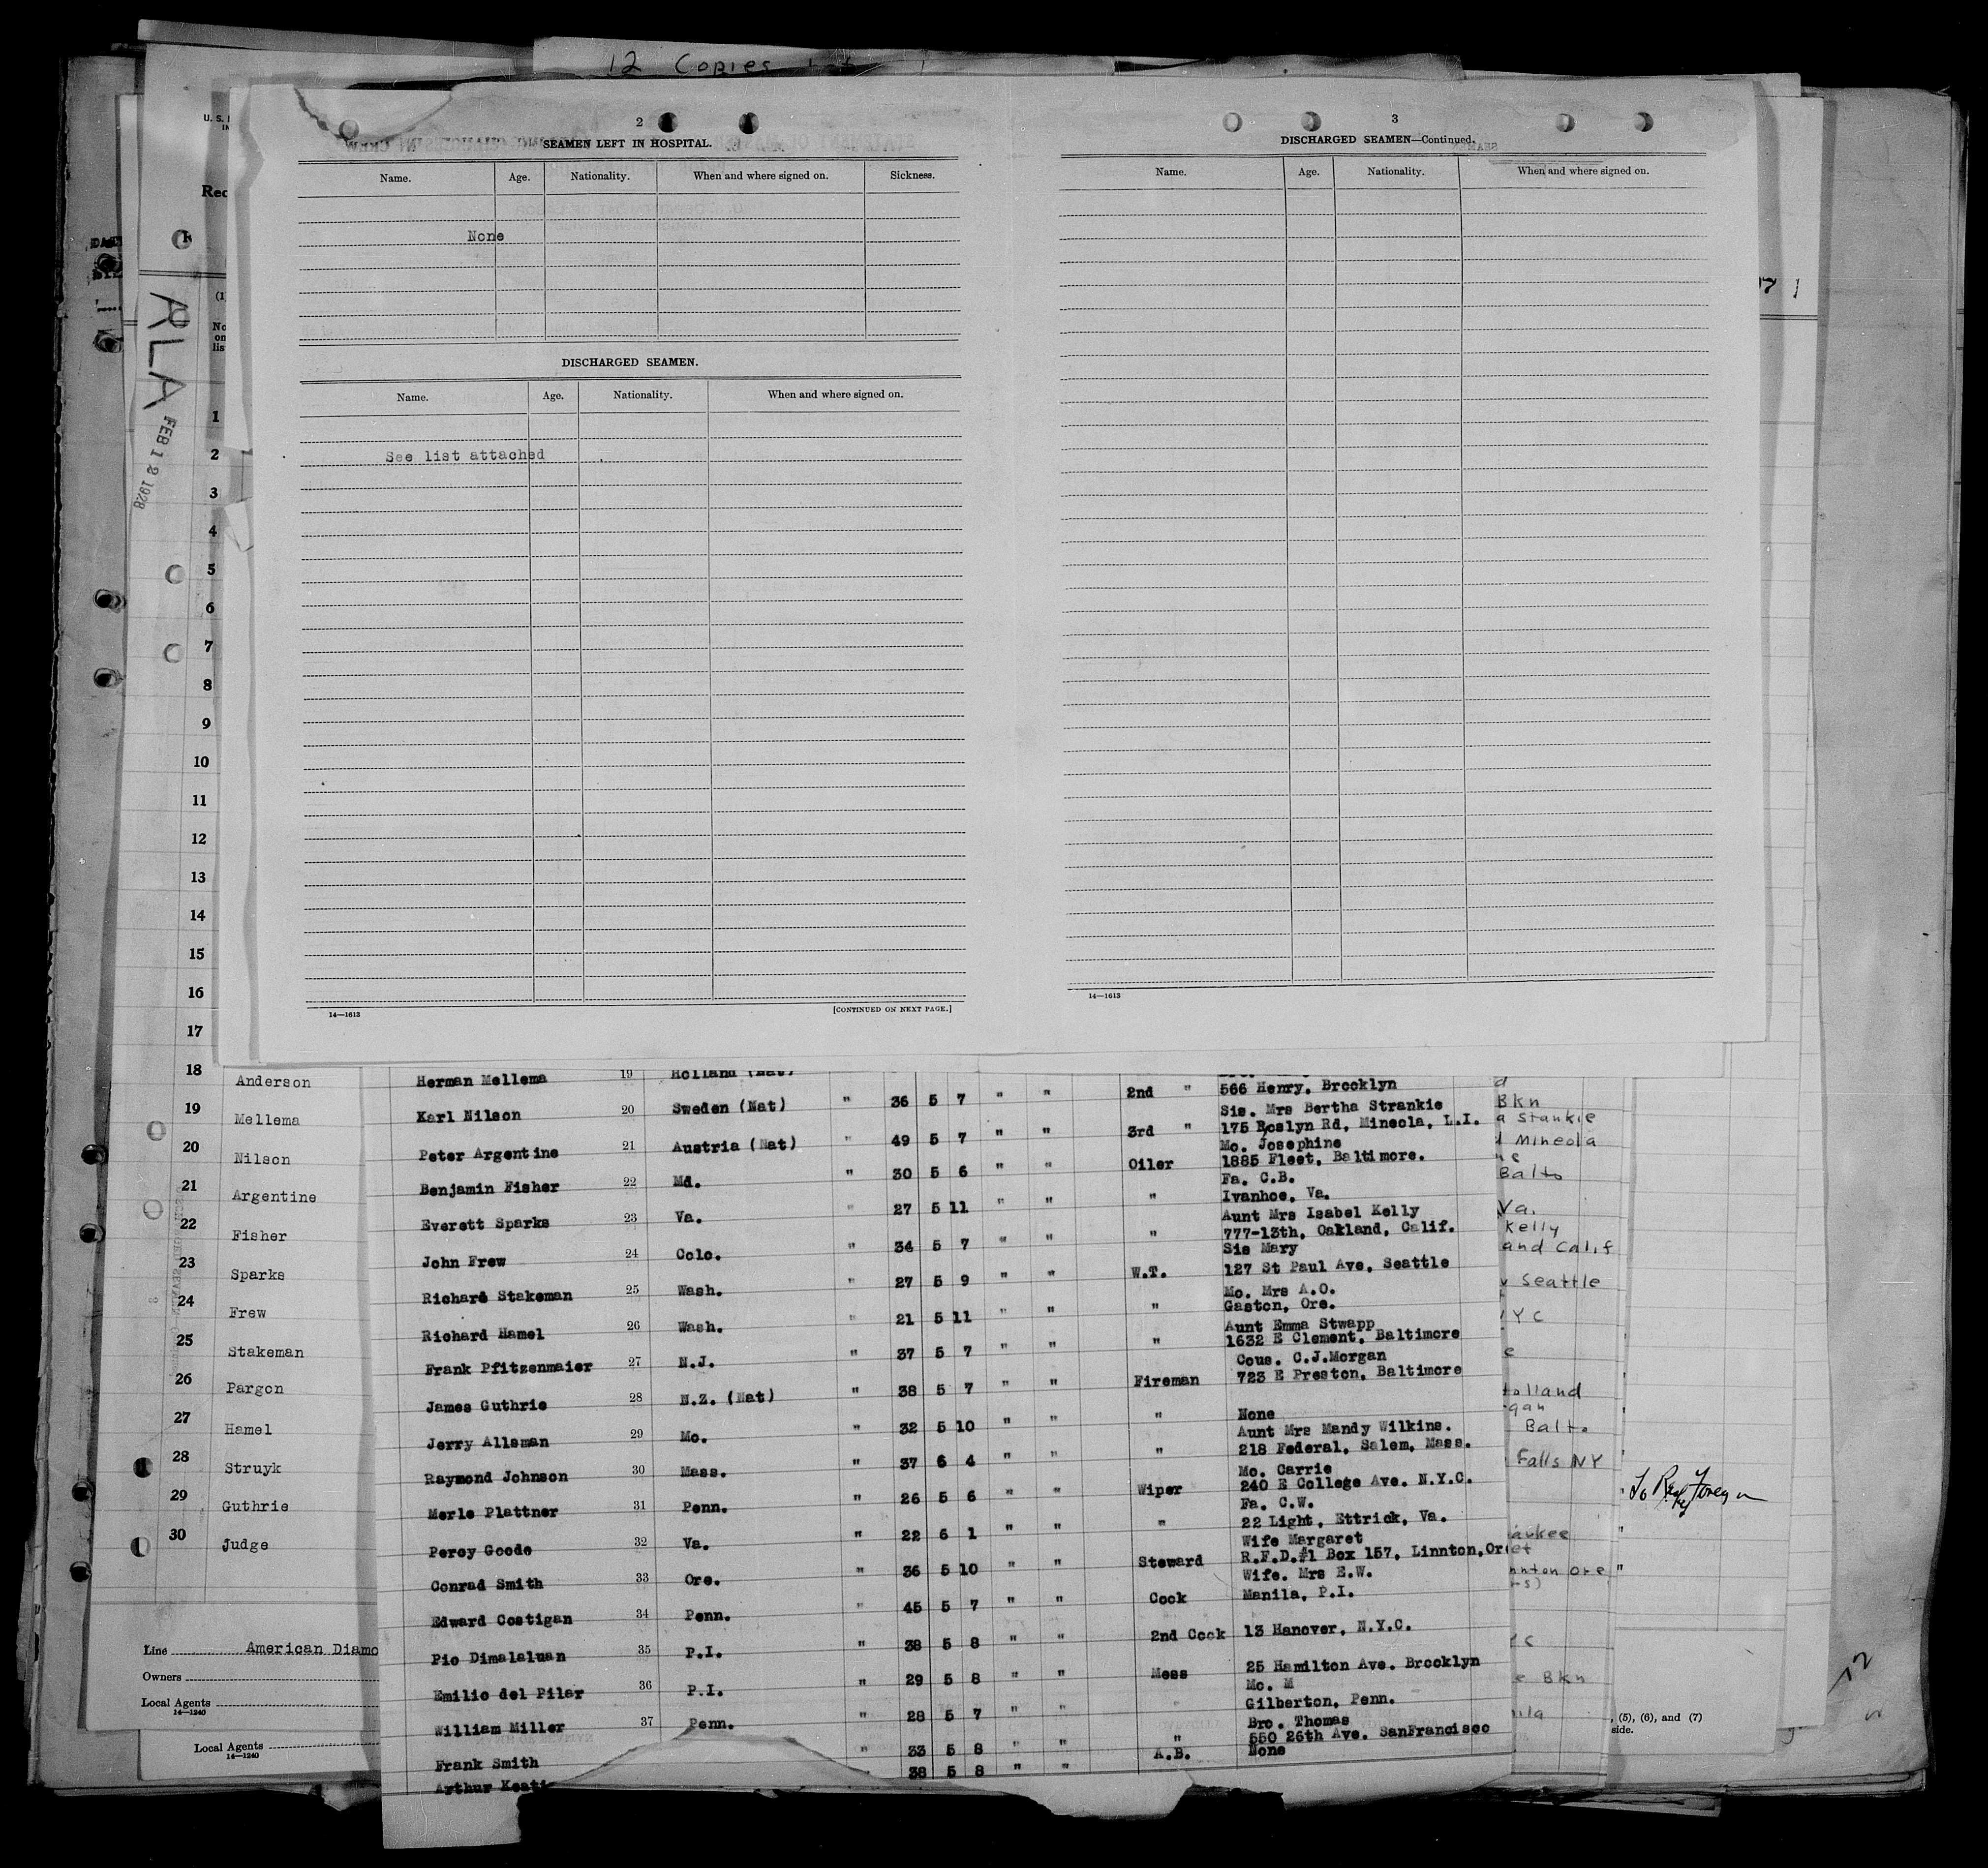 12 Copies
2
SEAMEN LEFT IN HOSPITAL.
Name. Age. Nationality. When and where signed on. Sickness.
None
DISCHARGED SEAMEN.
Name. Age. Nationality. When and where signed on.
See list attached
14—1613 [CONTINUED ON NEXT PAGE.]
3
DISCHARGED SEAMEN—Continued.
Name. Age. Nationality. When and where signed on.
14—1613
U. S.
IN
Rec
(1)
No
on
lis
RLA
FEB 12 1928
1
2
3
4
5
6
7
8
9
10
11
12
13
14
15
16
17
18 Anderson
19 Mellema
20 Nilson
21 Argentine
22 Fisher
23 Sparks
24 Frew
25 Stakeman
26 Pargon
27 Hamel
28 Struyk
29 Guthrie
30 Judge
Line American Diamo
Owners
Local Agents
14—1240
Local Agents
14—1240
Herman Mellema 19 Holland (Nat)
566 Henry, Brooklyn
Karl Nilson 20 Sweden (Nat) " 36 5 7 " " 2nd "
Sis. Mrs Bertha Strankie
175 Roslyn Rd, Mineola, L.I.
Peter Argentine 21 Austria (Nat) " 49 5 7 " " 3rd "
Mo. Josephine
1885 Fleet, Baltimore.
Benjamin Fisher 22 Md. " 30 5 6 " " Oiler
Fa. C.B.
Ivanhoe, Va.
Everett Sparks 23 Va. " 27 5 11 " " "
Aunt Mrs Isabel Kelly
777-13th, Oakland, Calif.
John Frew 24 Colo. " 34 5 7 " " "
Sis Mary
127 St Paul Ave, Seattle
Richard Stakeman 25 Wash. " 27 5 9 " " W.T.
Mo. Mrs A.O.
Gaston, Ore.
Richard Hamel 26 Wash. " 21 5 11 " " "
Aunt Emma Stwapp
1632 E Clement, Baltimore
Frank Pfitzenmaier 27 N.J. " 37 5 7 " " "
Cous. C.J.Morgan
723 E Preston, Baltimore
James Guthrie 28 N.Z. (Nat) " 38 5 7 " " Fireman
None
Jerry Alleman 29 Mo. " 32 5 10 " " "
Aunt Mrs Mandy Wilkins.
218 Federal, Salem, Mass.
Raymond Johnson 30 Mass. " 37 6 4 " " "
Mo. Carrie
240 E College Ave. N.Y.C.
Merle Plattner 31 Penn. " 26 5 6 " " Wiper
Fa. C.W.
22 Light, Ettrick, Va.
Percy Goode 32 Va. " 22 6 1 " " "
Wife Margaret
R.F.D.#1 Box 157, Linnton,Or
Conrad Smith 33 Ore. " 36 5 10 " " Steward
Wife. Mrs E.W.
Manila, P.I.
Edward Costigan 34 Penn. " 45 5 7 " " Cook
13 Hanover, N.Y.C.
Pio Dimalaluan 35 P.I. " 38 5 8 " " 2nd Cook
25 Hamilton Ave. Brooklyn
Emilio del Pilar 36 P.I. " 29 5 8 " " Mess
Mo. M
Gilberton, Penn.
William Miller 37 Penn. " 28 5 7 " " "
Bro. Thomas
550 26th Ave. SanFrancisco
Frank Smith " 33 5 8 " " "
None
Arthur Keati 38 5 8 " " A.B.
Bkn
a Stankie
Mineola
Balto
Va.
Kelly
and Calif
Seattle
Y C
Holland
gan
Balto.
Falls NY
aukee
nnton Ore "
Bkn
nila
, (5), (6), and (7)
side.